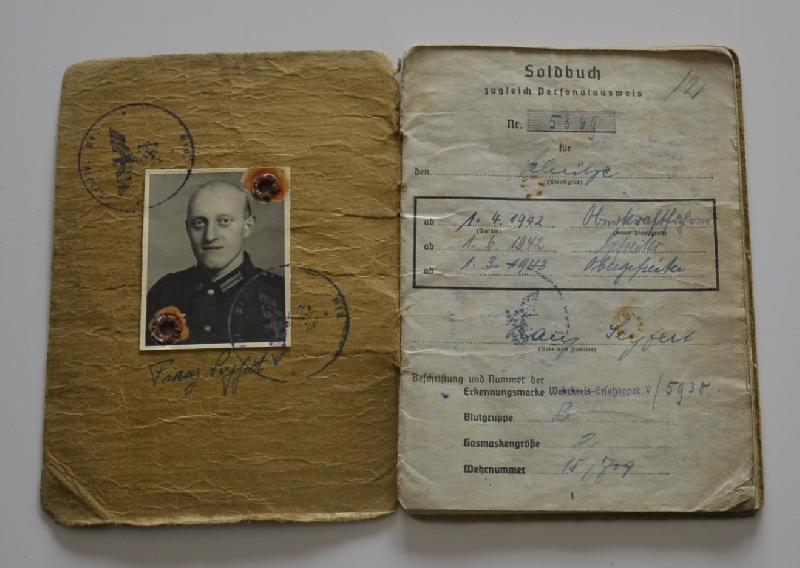 Franz Seyfert
Soldbuch
zugleich Personalausweis
12
Nr. 5369
für
den Schütze
(Dienstgrad)
ab 1. 4. 1942 Oberkraftfahrer
(Datum) (neuer Dienstgrad)
ab 1. 6. 1942 Gefreiter
ab 1. 3. 1943 Obergefreiter
Seyfert
(Vor- und Zuname)
Beschriftung und Nummer der
Erkennungsmarke Wehrkreis-Ersatzdepot V / 5930
Blutgruppe B
Gasmaskengröße 2
Wehrnummer
1